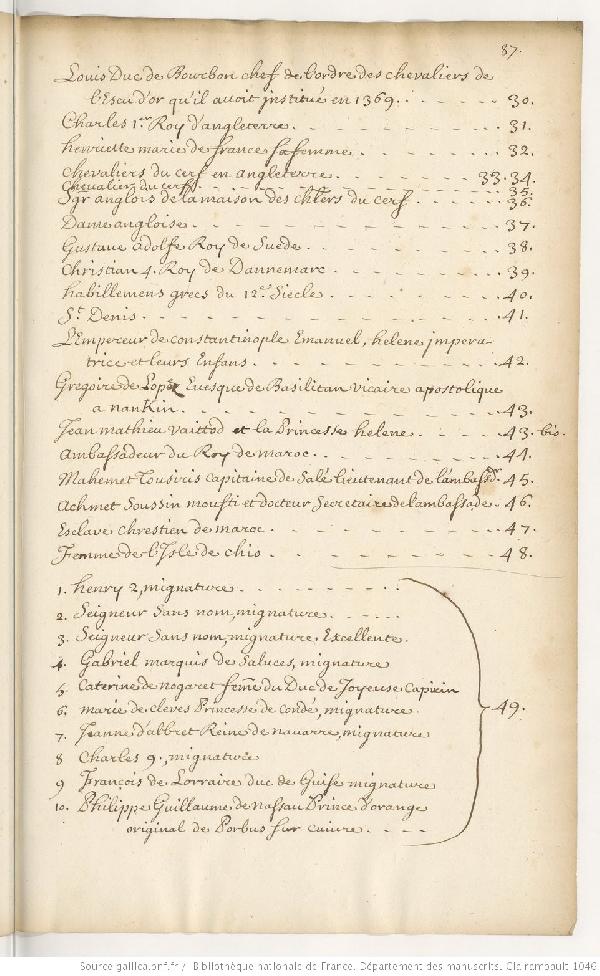 87.
Louis Duc de Bourbon chef de l'ordre des chevaliers de
l'Escu d'or qu'il avoit jnstitué en 1369. . . . . . . . 30.
Charles 1.er Roy d'angleterre. . . . . . . . . 31.
henriette marie de france sa femme . . . . . . . 32.
chevaliers du cerf en angleterre . . . . . . . 33. 34.
Chevalier du cerf . . . . . . . . . 35.
Sgr anglois de la maison des chlers du cerf . . . . 36.
Dame angloise . . . . . . . . . . . 37.
Gustave adolfe Roy de Suede . . . . . . . . 38.
Christian 4. Roy de Dannemarc . . . . . . . 39.
habillemens grecs du 12.e Siecle . . . . . . . 40.
St Denis . . . . . . . . . . . . 41.
L'Empereur de constantinople Emanuel, helene jmpera-
trice et leurs Enfans . . . . . . . . . 42.
Gregoire de Lopez Evesque de Basilitan vicaire apostolique
a nanKin . . . . . . . . . . . . 43.
Jean mathieu vaittod et la Princesse helene . . . . 43. bis.
ambassadeur du Roy de maroc . . . . . . . 44.
Mahemet Tousiris capitaine de Salé Lieutenant de l'ambassdr. 45.
Achmet Soussin moufti et docteur Secretaire de l'ambassade. 46.
Esclave chrestien de maroc . . . . . . . . . 47.
Femme de l'Isle de chio . . . . . . . . . 48.
1. henry 2, mignature . . . . . . . . .
2. Seigneur Sans nom, mignature . . . . .
3. Seigneur Sans nom, mignature Excellente.
4. Gabriel marquis de Saluces, mignature
5. Caterine de nogaret feme du Duc de Joyeuse Capucin
6. marie de cleves Princesse de condé, mignature . 49.
7. Jeanne d'albret Reine de navarre, mignature
8 Charles 9., mignature
9 François de Lorraine duc de Guise mignature
10. Philippe Guillaume de nassau Prince d'orange
original de Porbus sur cuivre . . . .
Source gallica.bnf.fr / Bibliothèque nationale de France. Département des manuscrits. Clairambault 1046